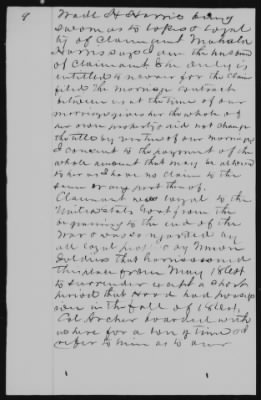 9
Wade H Harris being
sworn as to
of Claimant Mahala
Harris says I am the husband
of Claimant she only is
entitled to for the claim
filed The marriage contract
between us at the time of our
marriage gives her the whole of
her own property & did not change
the title by virtue of our marriage
I consent to the payment of the
whole amount that may be allowed
to her as I have no claim to the
same or any part thereof.
Claimant was loyal to the
United States Govt from the
beginning to the end of the
War & was so regarded by
all loyal Union
Soldiers that
this place from May 1864
to surrender except a short
period that Hood had
in the fall of 1864.
Col Archer boarded with
us here for a long time
refer to him as to our